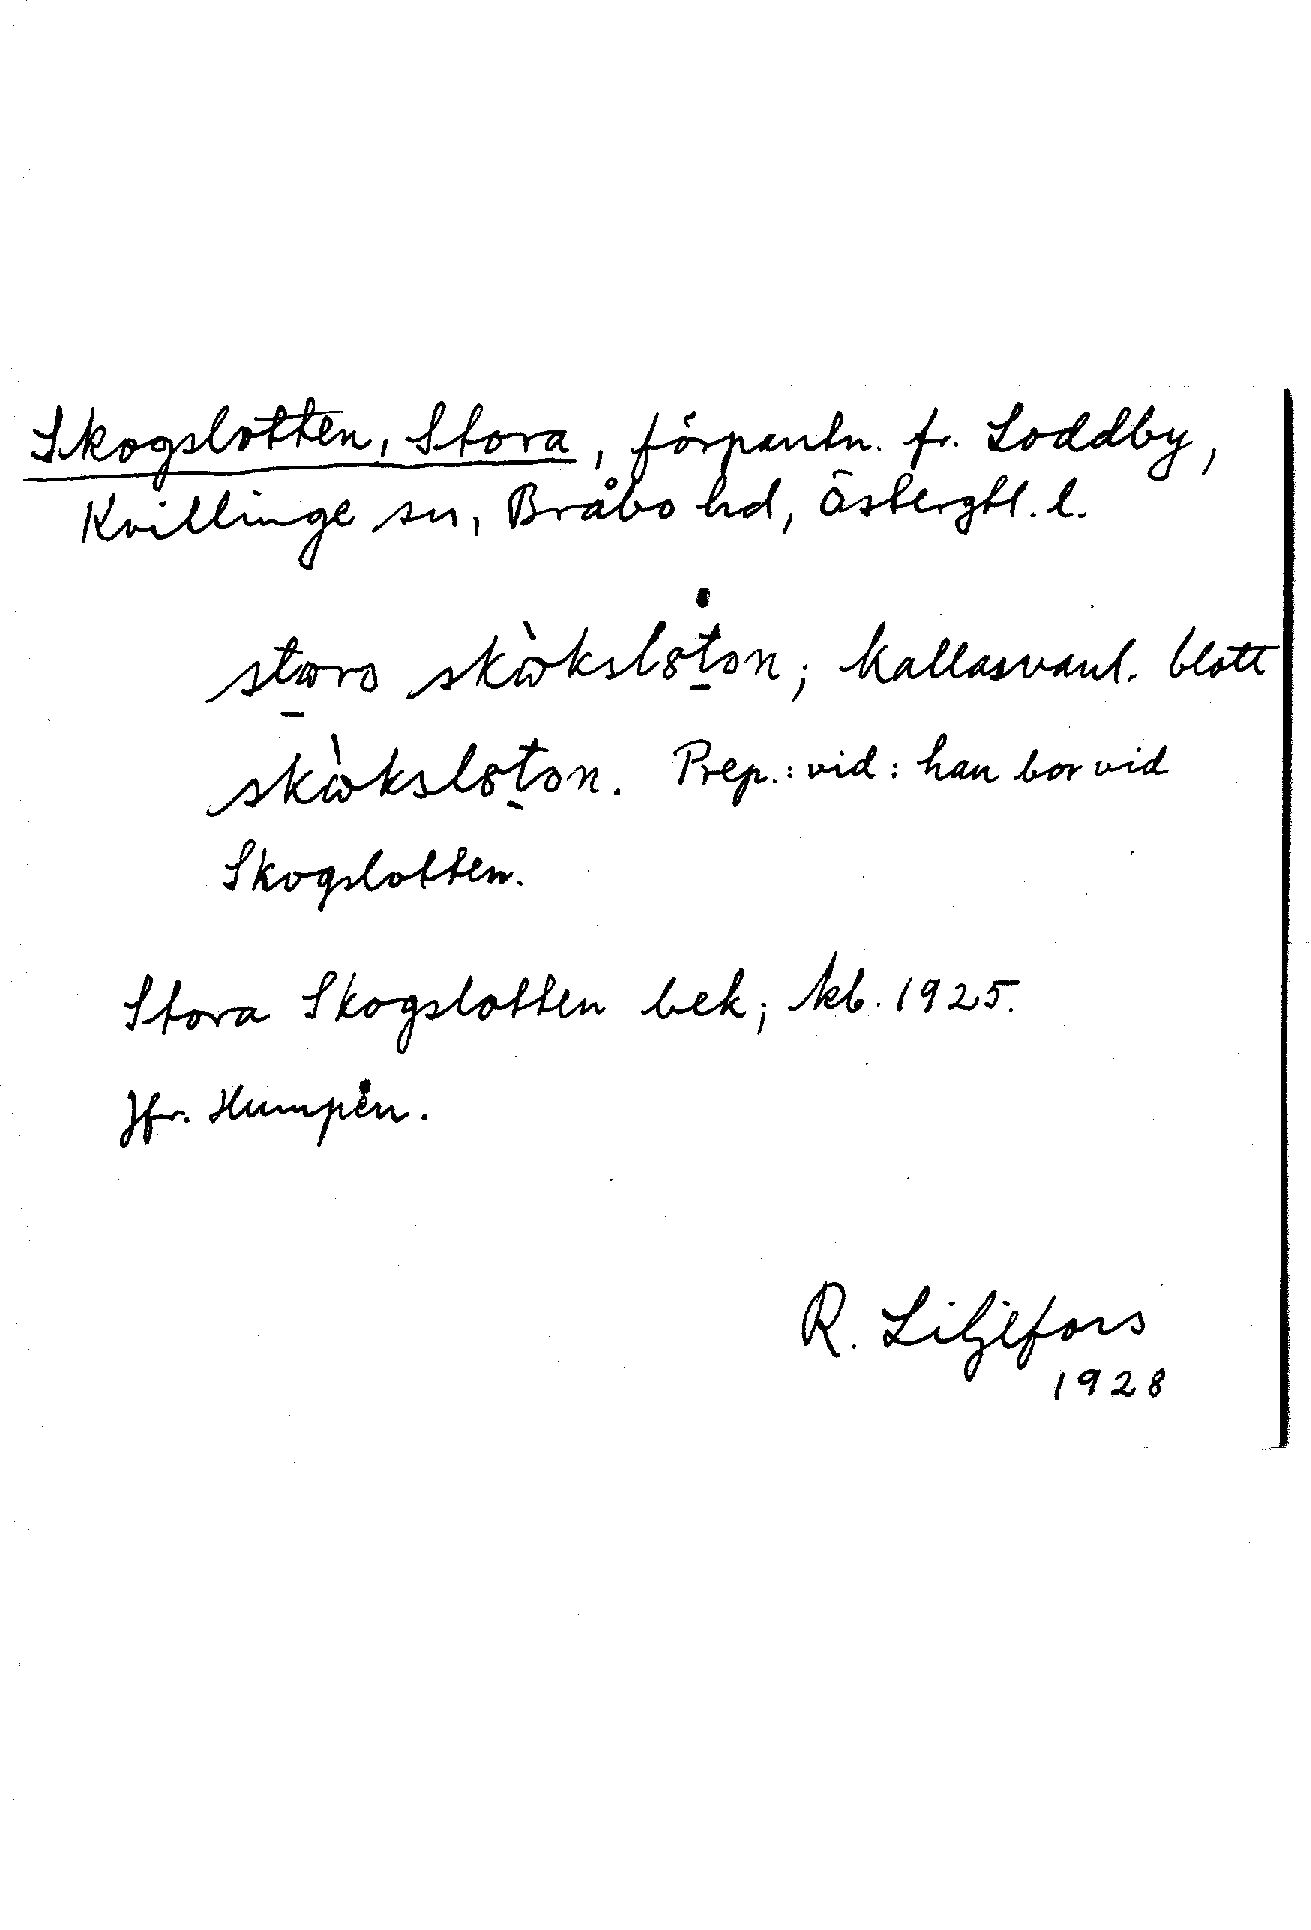 Skogslotten, Stora, förpantn. fr. Loddby,
Kvillinge sn, Bråbo hd, Östergtl. l.
kallas vanl. blott
Prep.: vid: han bor vid
Skogslotten.
Stora Skogslotten bek; kb. 1925.
Jfr. Humpen.
R. Liljefors
1928